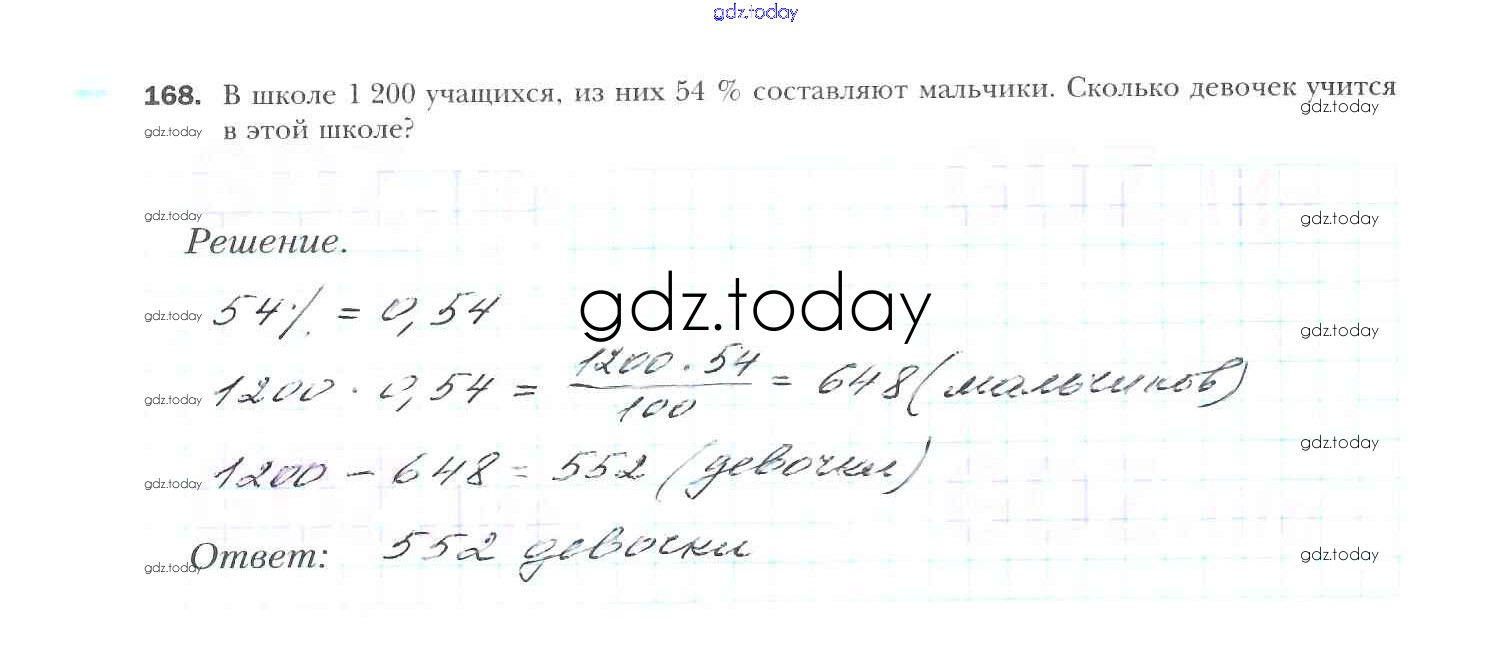 gdz.today
168. В школе 1 200 учащихся, из них 54 % составляют мальчики. Сколько девочек учится
gdz.today
gdz.today в этой школе?
gdz.today
gdz.today
Решение.
gdz.today 54% = 0,54
gdz.today
gdz.today
gdz.today 1200 · 0,54 = 1200 · 54 / 100 = 648 (мальчиков)
gdz.today
gdz.today 1200 - 648 = 552 (девочки)
Ответ: 552 девочки
gdz.today
gdz.today